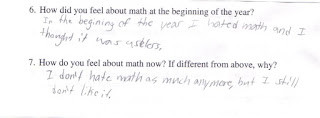 6. How did you feel about math at the beginning of the year?
In the begining of the year I hated math and I
thought it was useless.
7. How do you feel about math now? If different from above, why?
I don't hate math as much anymore, but I still
don't like it.